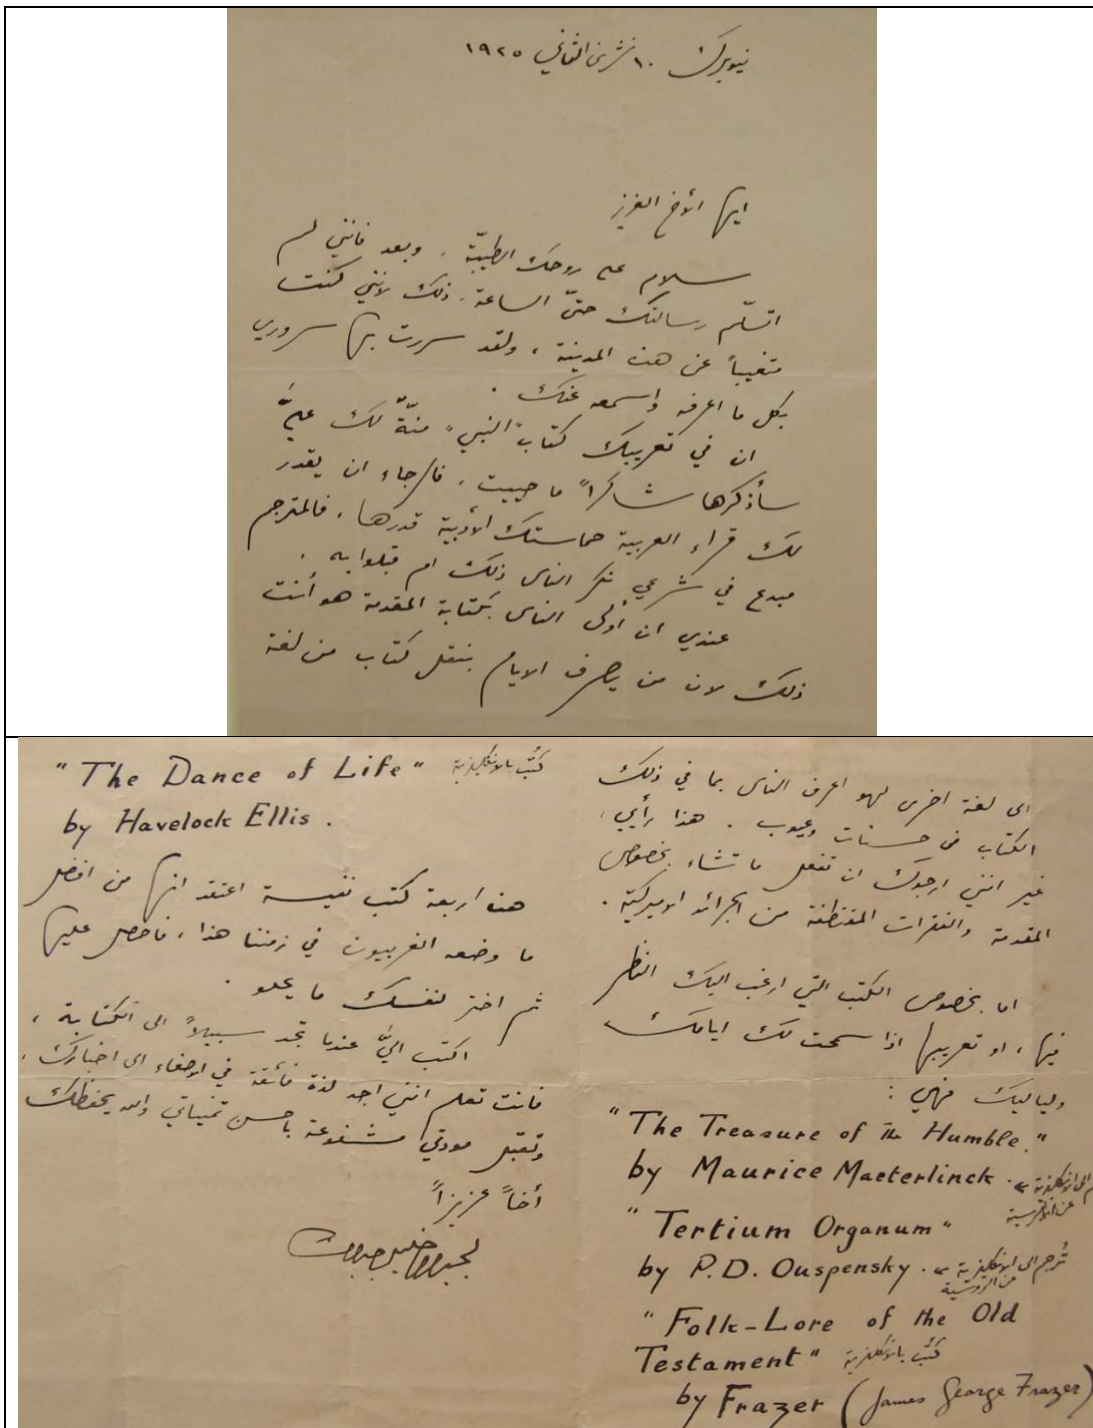 نيويرك ١٠ تشرين الثاني ١٩٢٥
ايها الأخ العزيز
سلام على روحك الطيبة. وبعد فانني لم
اتسلّم رسالتك حتىّ الساعة. ذلك لانني كنت
متغيباً عن هذه المدينة، ولقد سررت بها سروري
بكل ما اعرفه واسمعه عنك.
ان في تعريبك كتاب "النبي" منّةّ لك عليَّ
سأذكرها شاكراً ما حييت. فالرجاء ان يقدر
لك قراء العربية حماستك الأدبية قدرها. فالمترجم
مبدع في شرعي نكر الناس ذلك ام قبلوا به.
عندي ان أولى الناس بكتابة المقدمة هو أنت
ذلك لان من يصرف الايام بنقل كتاب من لغة
الى لغة اخرى لهو اعرف الناس بما في ذلك
الكتاب من حسنات وعيوب. هذا رأيي،
غير انني ارجوك ان تفعل ما تشاء بخصوص
المقدمة والفقرات المقتطفة من الجرائد الاميركية.
اما بخصوص الكتب التي ارغب اليك النظر
فيها، او تعريبها اذا سمحت لك ايامك
ولياليك فهي:
"The Treasure of The Humble."
by Maurice Maeterlinck. الى الانكليزية
عن الافرنسية
"Tertium Organum"
by P.D. Ouspensky. تُرجم الى الانكليزية
من الروسية
"Folk-Lore of the Old
Testament" كُتب بالانكليزية
by Frazer (James George Frazer)
"The Dance of Life" كُتب بالانكليزية
by Havelock Ellis.
هذه اربعة كتب نفيسة اعتقد انها من افضل
ما وضعه الغربيون في زمننا هذا، فاحصل عليها
ثم اختر لنفسك ما يحلو.
اكتب اليَّ عندما تجد سبيلاً الى الكتابة،
فانت تعلم انني اجد لذة فائقة في الاصغاء الى اخبارك.
وتقبل مودتي مشفوعة باحسن تمنياتي والله يحفظك
أخاً عزيزاً
جبران خليل جبران